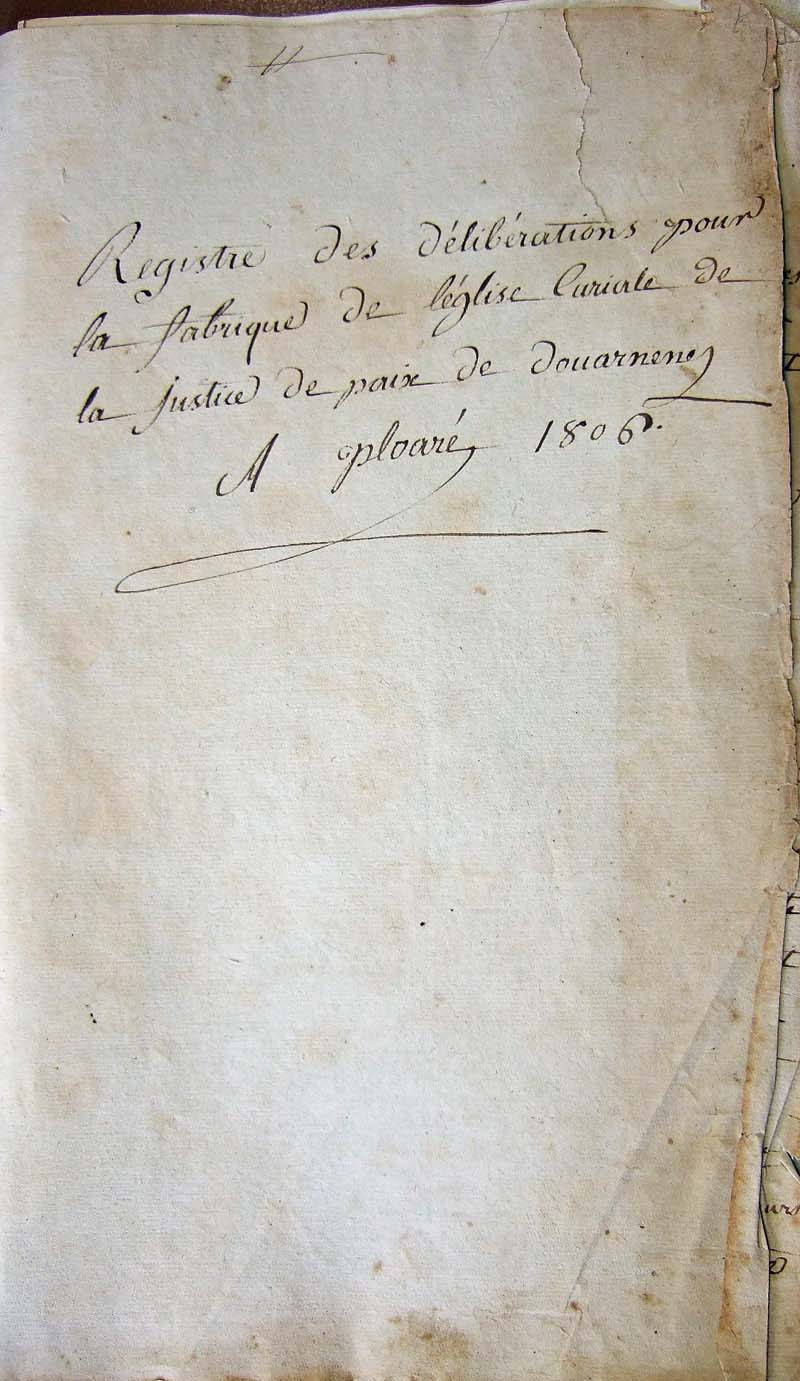 Registre des délibérations pour
la fabrique de l'église Curiale de
la justice de paix de douarnenez
A ploaré, 1806.